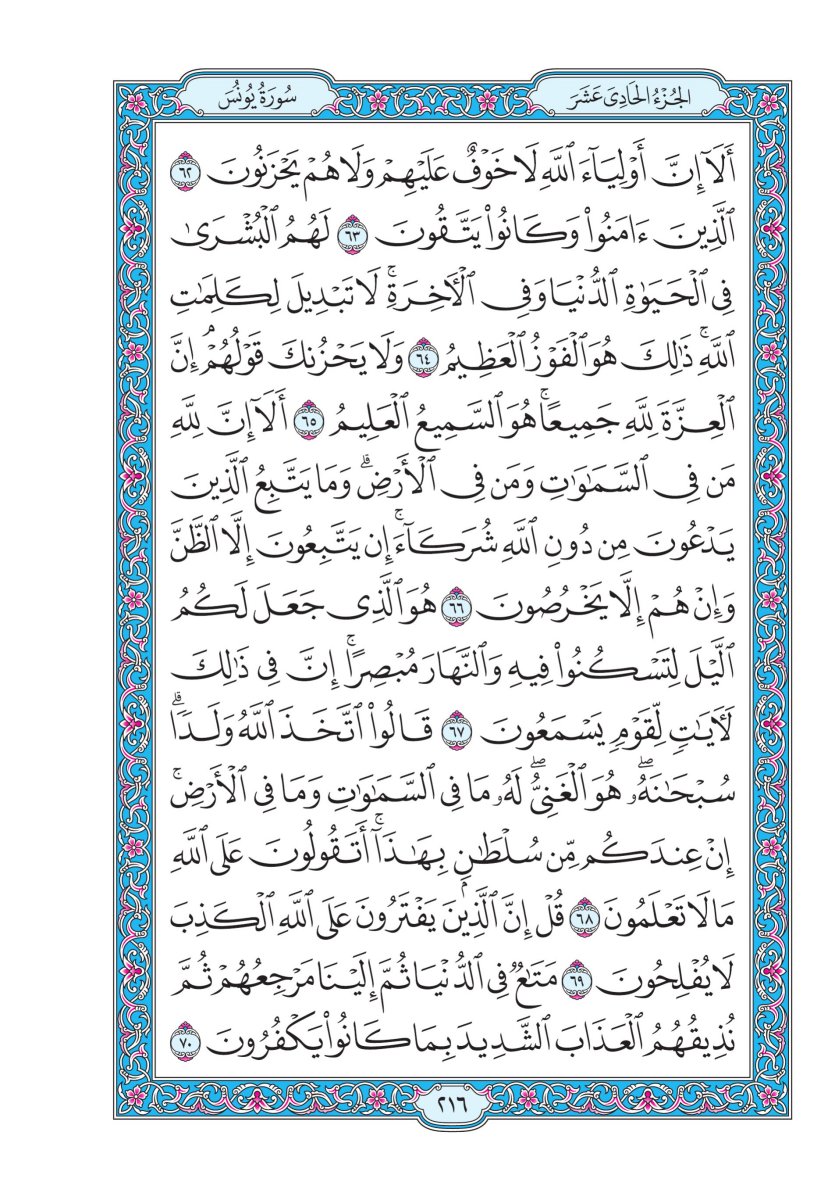 الجُزْءُ الحَادِي عَشَرَ
سُورَةُ يُونُسَ
أَلَآ إِنَّ أَوْلِيَآءَ ٱللَّهِ لَا خَوْفٌ عَلَيْهِمْ وَلَا هُمْ يَحْزَنُونَ ٦٢
ٱلَّذِينَ ءَامَنُوا۟ وَكَانُوا۟ يَتَّقُونَ ٦٣ لَهُمُ ٱلْبُشْرَىٰ
فِى ٱلْحَيَوٰةِ ٱلدُّنْيَا وَفِى ٱلْـَٔاخِرَةِ ۚ لَا تَبْدِيلَ لِكَلِمَـٰتِ
ٱللَّهِ ۚ ذَٰلِكَ هُوَ ٱلْفَوْزُ ٱلْعَظِيمُ ٦٤ وَلَا يَحْزُنكَ قَوْلُهُمْ ۘ إِنَّ
ٱلْعِزَّةَ لِلَّهِ جَمِيعًا ۚ هُوَ ٱلسَّمِيعُ ٱلْعَلِيمُ ٦٥ أَلَآ إِنَّ لِلَّهِ
مَن فِى ٱلسَّمَـٰوَٰتِ وَمَن فِى ٱلْأَرْضِ ۗ وَمَا يَتَّبِعُ ٱلَّذِينَ
يَدْعُونَ مِن دُونِ ٱللَّهِ شُرَكَآءَ ۚ إِن يَتَّبِعُونَ إِلَّا ٱلظَّنَّ
وَإِنْ هُمْ إِلَّا يَخْرُصُونَ ٦٦ هُوَ ٱلَّذِى جَعَلَ لَكُمُ
ٱلَّيْلَ لِتَسْكُنُوا۟ فِيهِ وَٱلنَّهَارَ مُبْصِرًا ۚ إِنَّ فِى ذَٰلِكَ
لَـَٔايَـٰتٍ لِّقَوْمٍ يَسْمَعُونَ ٦٧ قَالُوا۟ ٱتَّخَذَ ٱللَّهُ وَلَدًا ۗ
سُبْحَـٰنَهُۥ ۖ هُوَ ٱلْغَنِىُّ ۖ لَهُۥ مَا فِى ٱلسَّمَـٰوَٰتِ وَمَا فِى ٱلْأَرْضِ ۚ
إِنْ عِندَكُم مِّن سُلْطَـٰنٍۭ بِهَـٰذَآ ۚ أَتَقُولُونَ عَلَى ٱللَّهِ
مَا لَا تَعْلَمُونَ ٦٨ قُلْ إِنَّ ٱلَّذِينَ يَفْتَرُونَ عَلَى ٱللَّهِ ٱلْكَذِبَ
لَا يُفْلِحُونَ ٦٩ مَتَـٰعٌ فِى ٱلدُّنْيَا ثُمَّ إِلَيْنَا مَرْجِعُهُمْ ثُمَّ
نُذِيقُهُمُ ٱلْعَذَابَ ٱلشَّدِيدَ بِمَا كَانُوا۟ يَكْفُرُونَ ٧٠
٢١٦